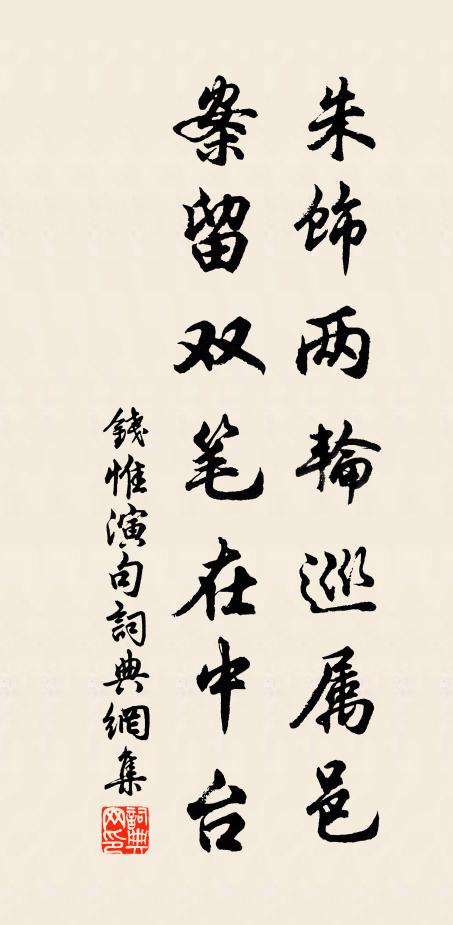 朱饰两輪巡属邑
案留双笔在中台
錢惟演句詞典網集
詞典网印